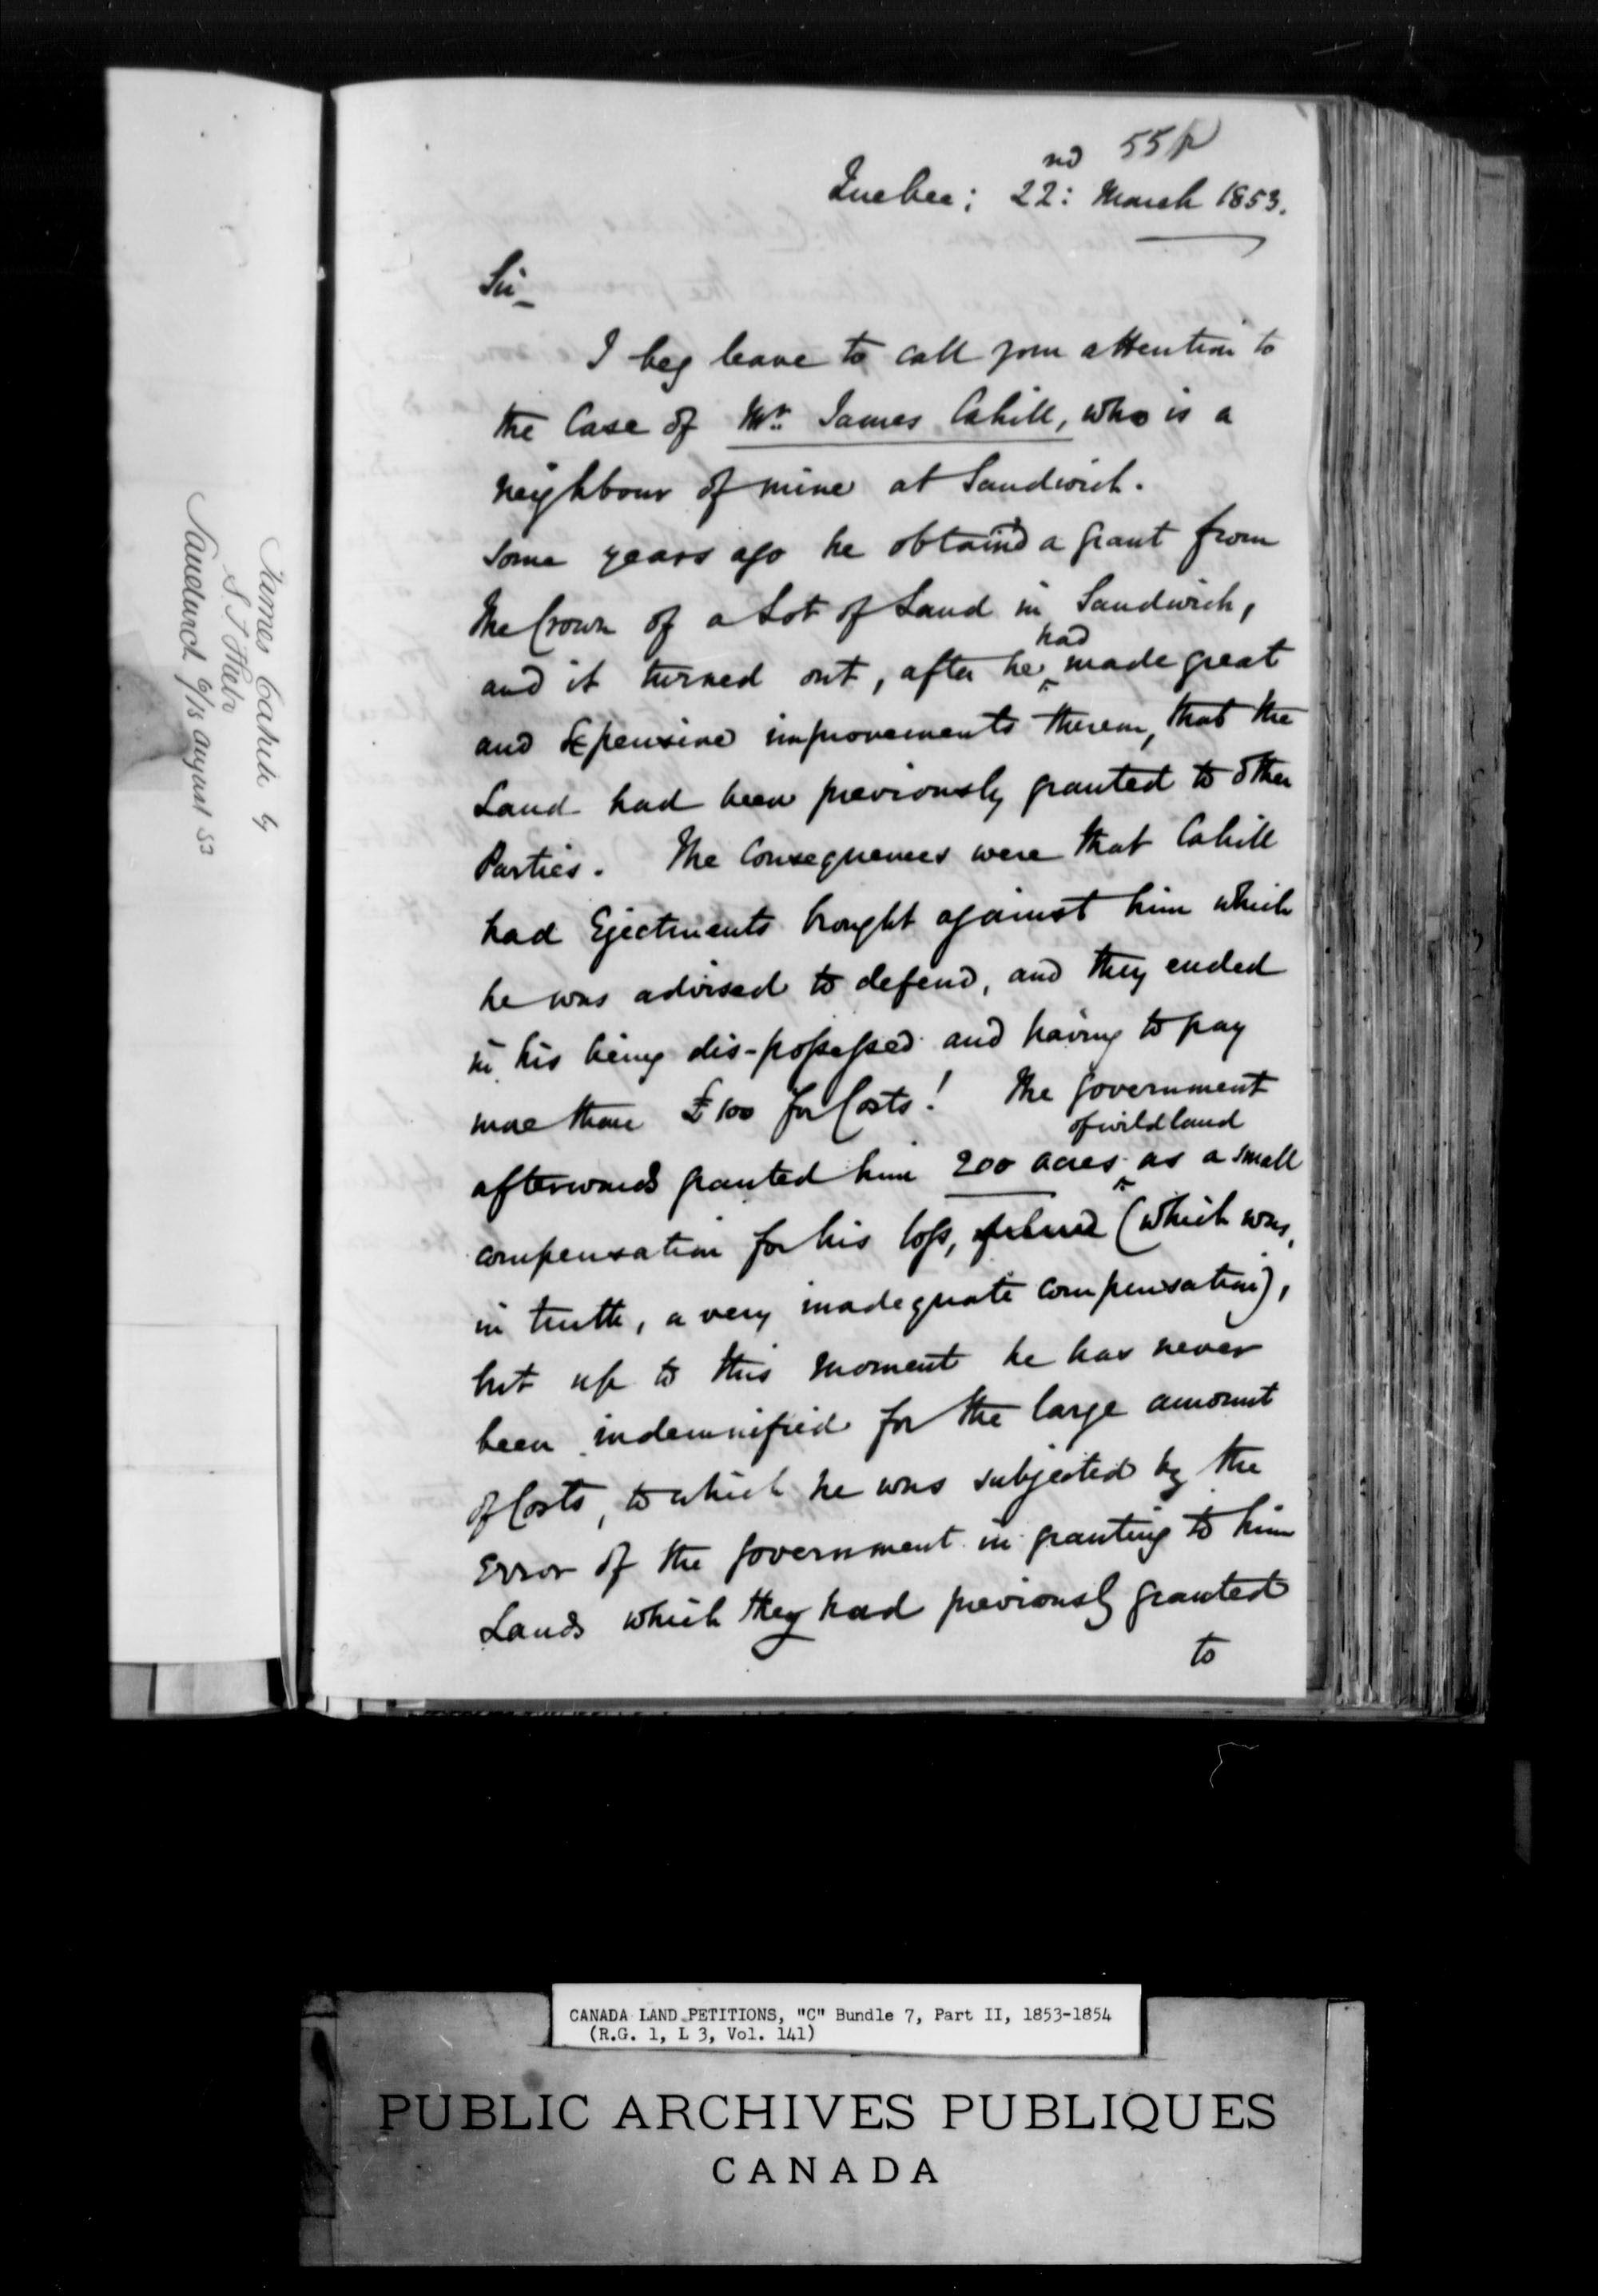 55p
Quebec; 22nd: March 1853.
Sir_
I beg leave to call your attention to
the Case of Mr. James Cahill, who is a
neighbour of mine at Sandwich.
Some years ago he obtained a grant from
the Crown of a Lot of Land in Sandwich,
and it turned out, after he had made great
and Expensive improvements thereon, that the
Land had been previously granted to other
Parties. The Consequences were that Cahill
had Ejectments brought against him which
he was advised to defend, and they ended
in his being dis-possessed and having to pay
more than £100 for Costs! The Government
afterwards granted him 200 acres of wild land as a small
compensation for his loss, (which was,
in truth, a very inadequate compensation),
but up to this moment he has never
been indemnified for the large amount
of Costs, to which he was subjected by the
Error of the Government in granting to him
Lands which they had previously granted
to
James Cahill by
Sandwich 6/8 August 53
CANADA LAND PETITIONS, "C" Bundle 7, Part II, 1853-1854
(R.G. 1, L 3, Vol. 141)
PUBLIC ARCHIVES PUBLIQUES
CANADA